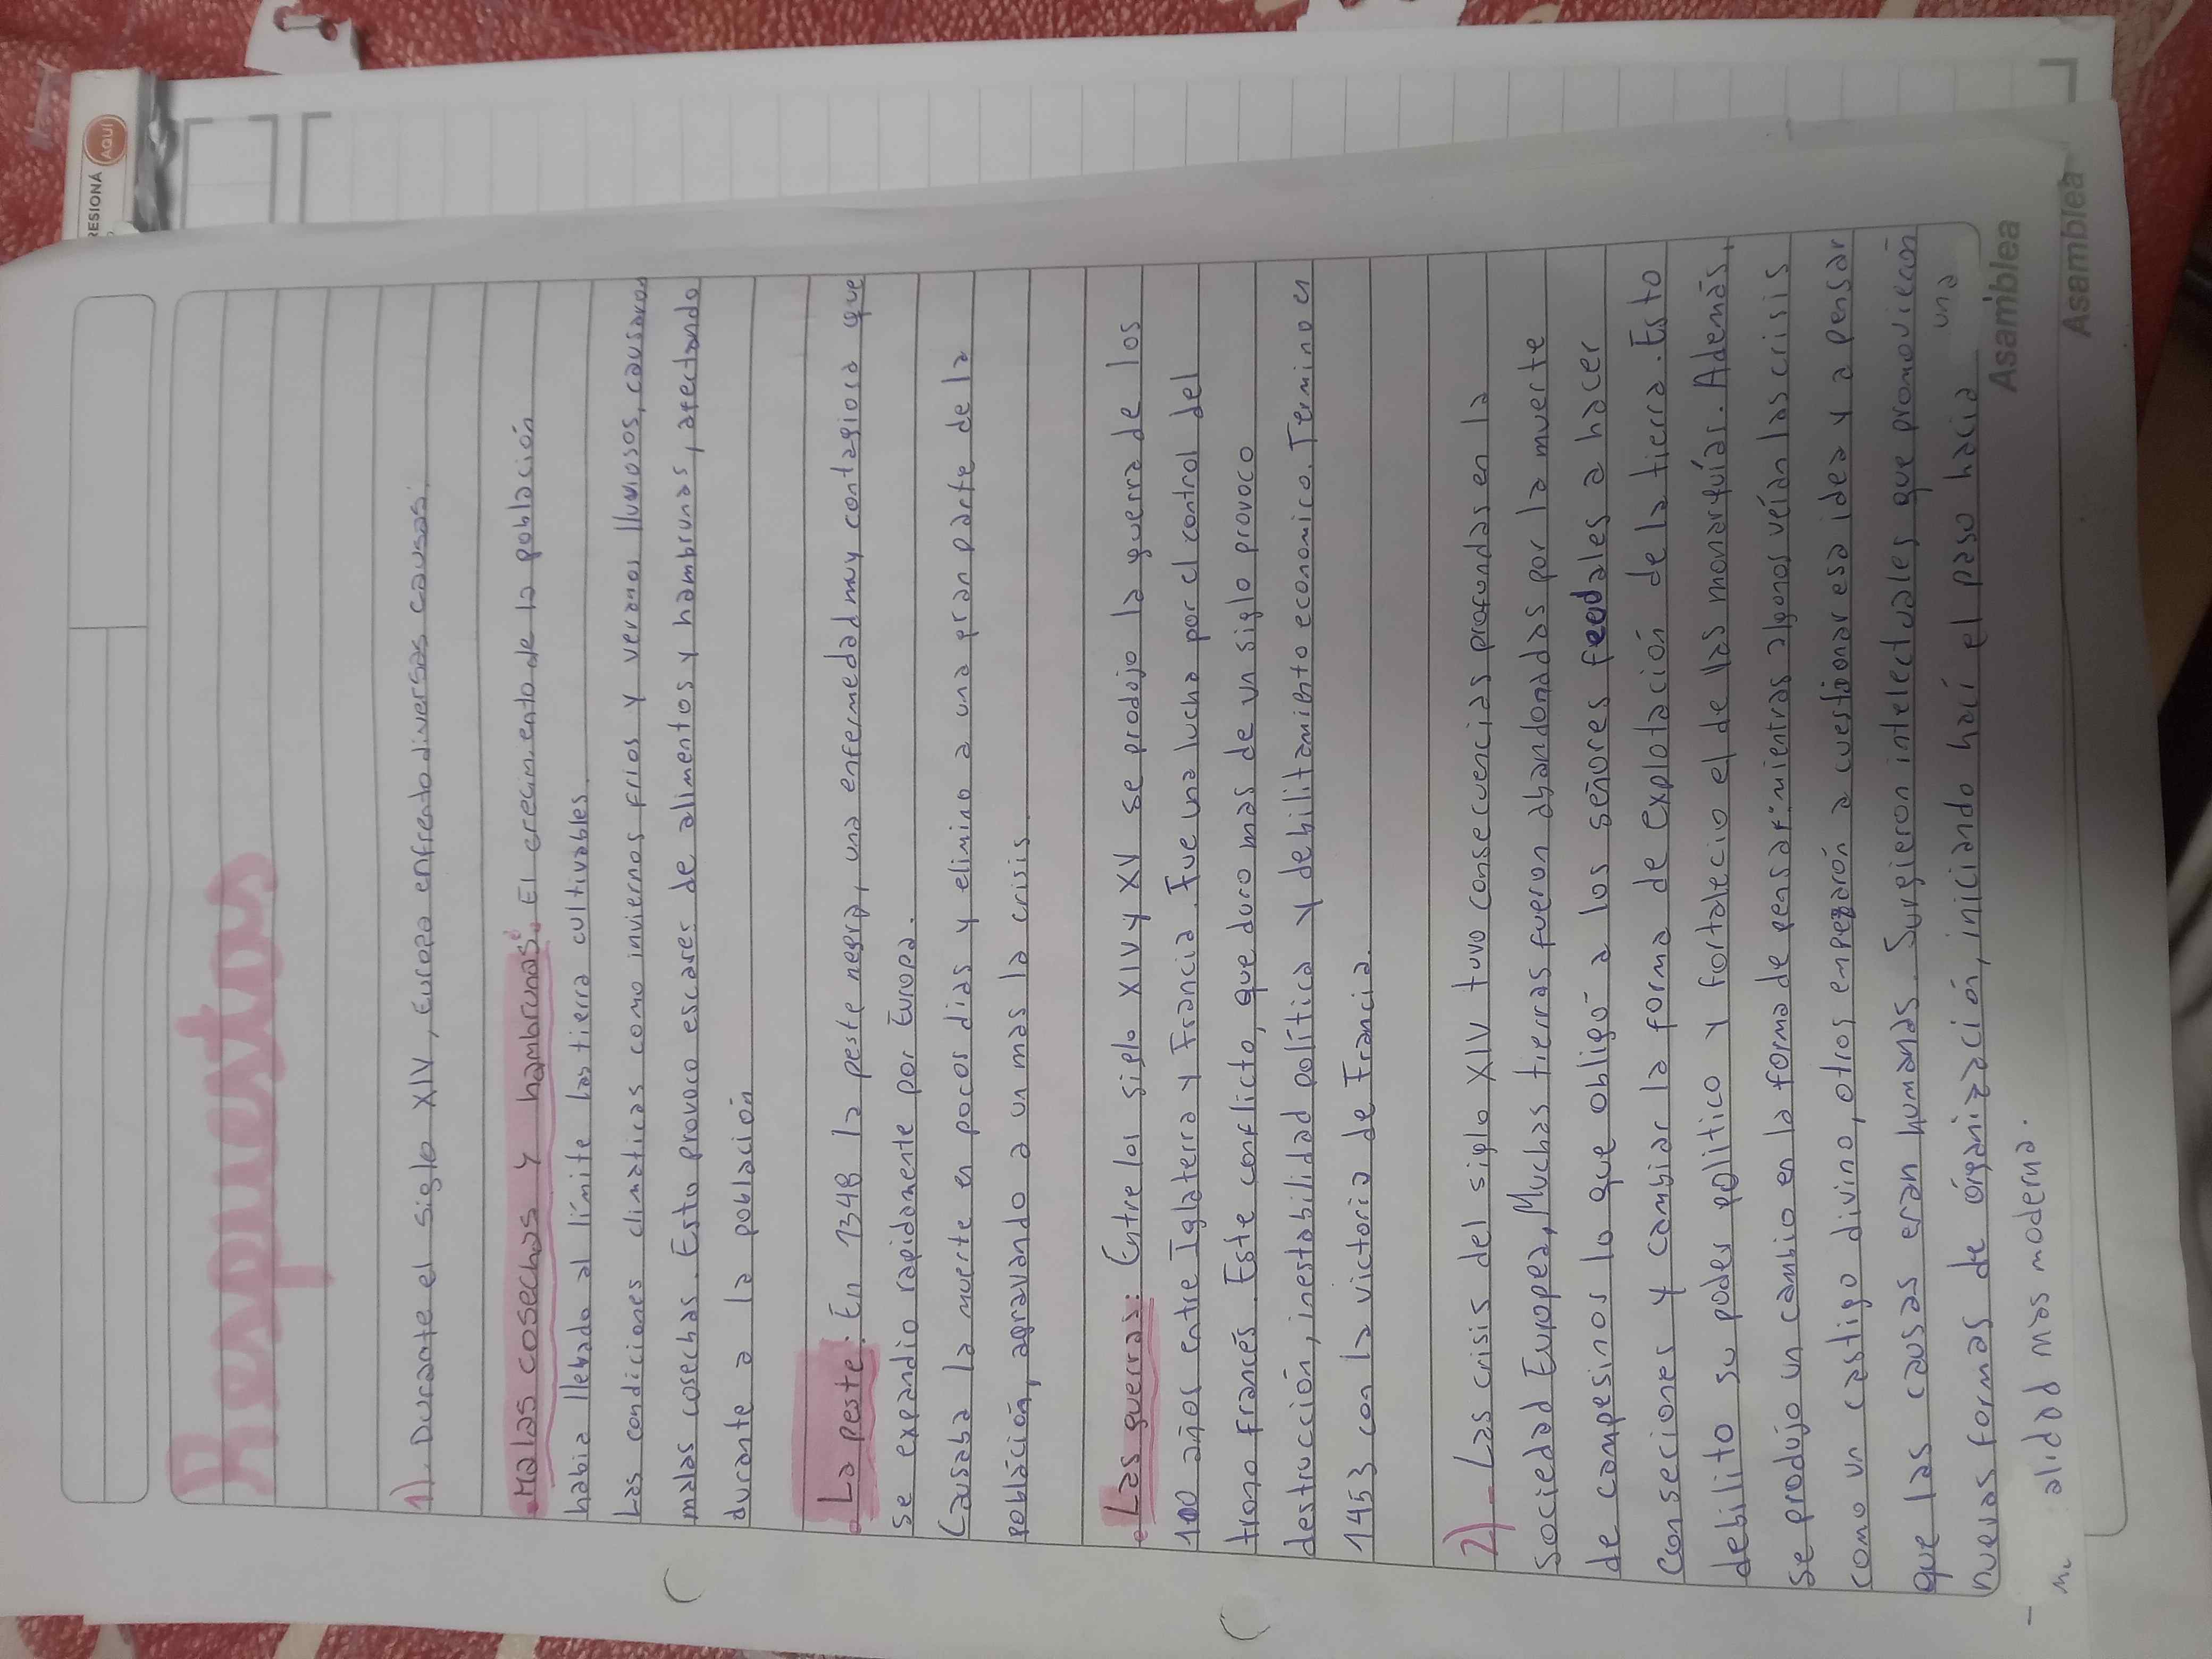 RESIONÁ
AQUÍ
Respuestas
1). Durante el siglo XIV, Europa enfrento diversas causas:
• Malas cosechas y hambrunas: El crecimiento de la población
habia llebado al límite las tierra cultivables.
Las condiciones climaticas como inviernos frios y veranos lluviosos, causaron
malas cosechas. Esto provoco escases de alimentos y hambrunas, afectando
durante a la población
• La peste: En 1348 la peste negra, una enfermedad muy contagiosa que
se expandio rapidamente por Europa.
Causaba la muerte en pocos dias y elimino a una gran parte de la
población, agravando a un mas la crisis.
• Las guerras: Entre los siglo XIV y XV se produjo la guerra de los
100 años entre Iglaterra y Francia. Fue una lucha por el control del
trono Francés. Este conflicto, que duro mas de un siglo provoco
destrucción, inestabilidad política y debilitamiento economico. Termino en
1453 con la victoria de Francia.
2)- Las crisis del siglo XIV tuvo consecuencias profundas en la
sociedad Europea, Muchas tierras fueron abandonadas por la muerte
de campesinos lo que obligó a los señores feudales a hacer
conseciones y cambiar la forma de explotación de la tierra. Esto
debilito su poder político y fortalecio el de las monarquías. Además,
se produjo un cambio en la forma de pensar: mientras algonos veían las crisis
como un castigo divino, otros empezarón a cuestionar esa idea y a pensar
que las causas eran humanas. Surgieron intelectuales que promovierón
nuevas formas de órganización, iniciando hací el paso hacia una
alidad mas moderna.
Asamblea
Asamblea